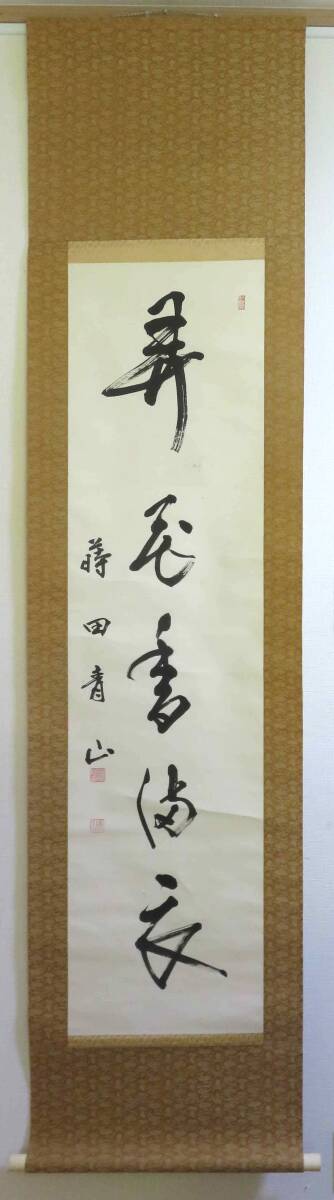 弄花香満衣
蒋田青山